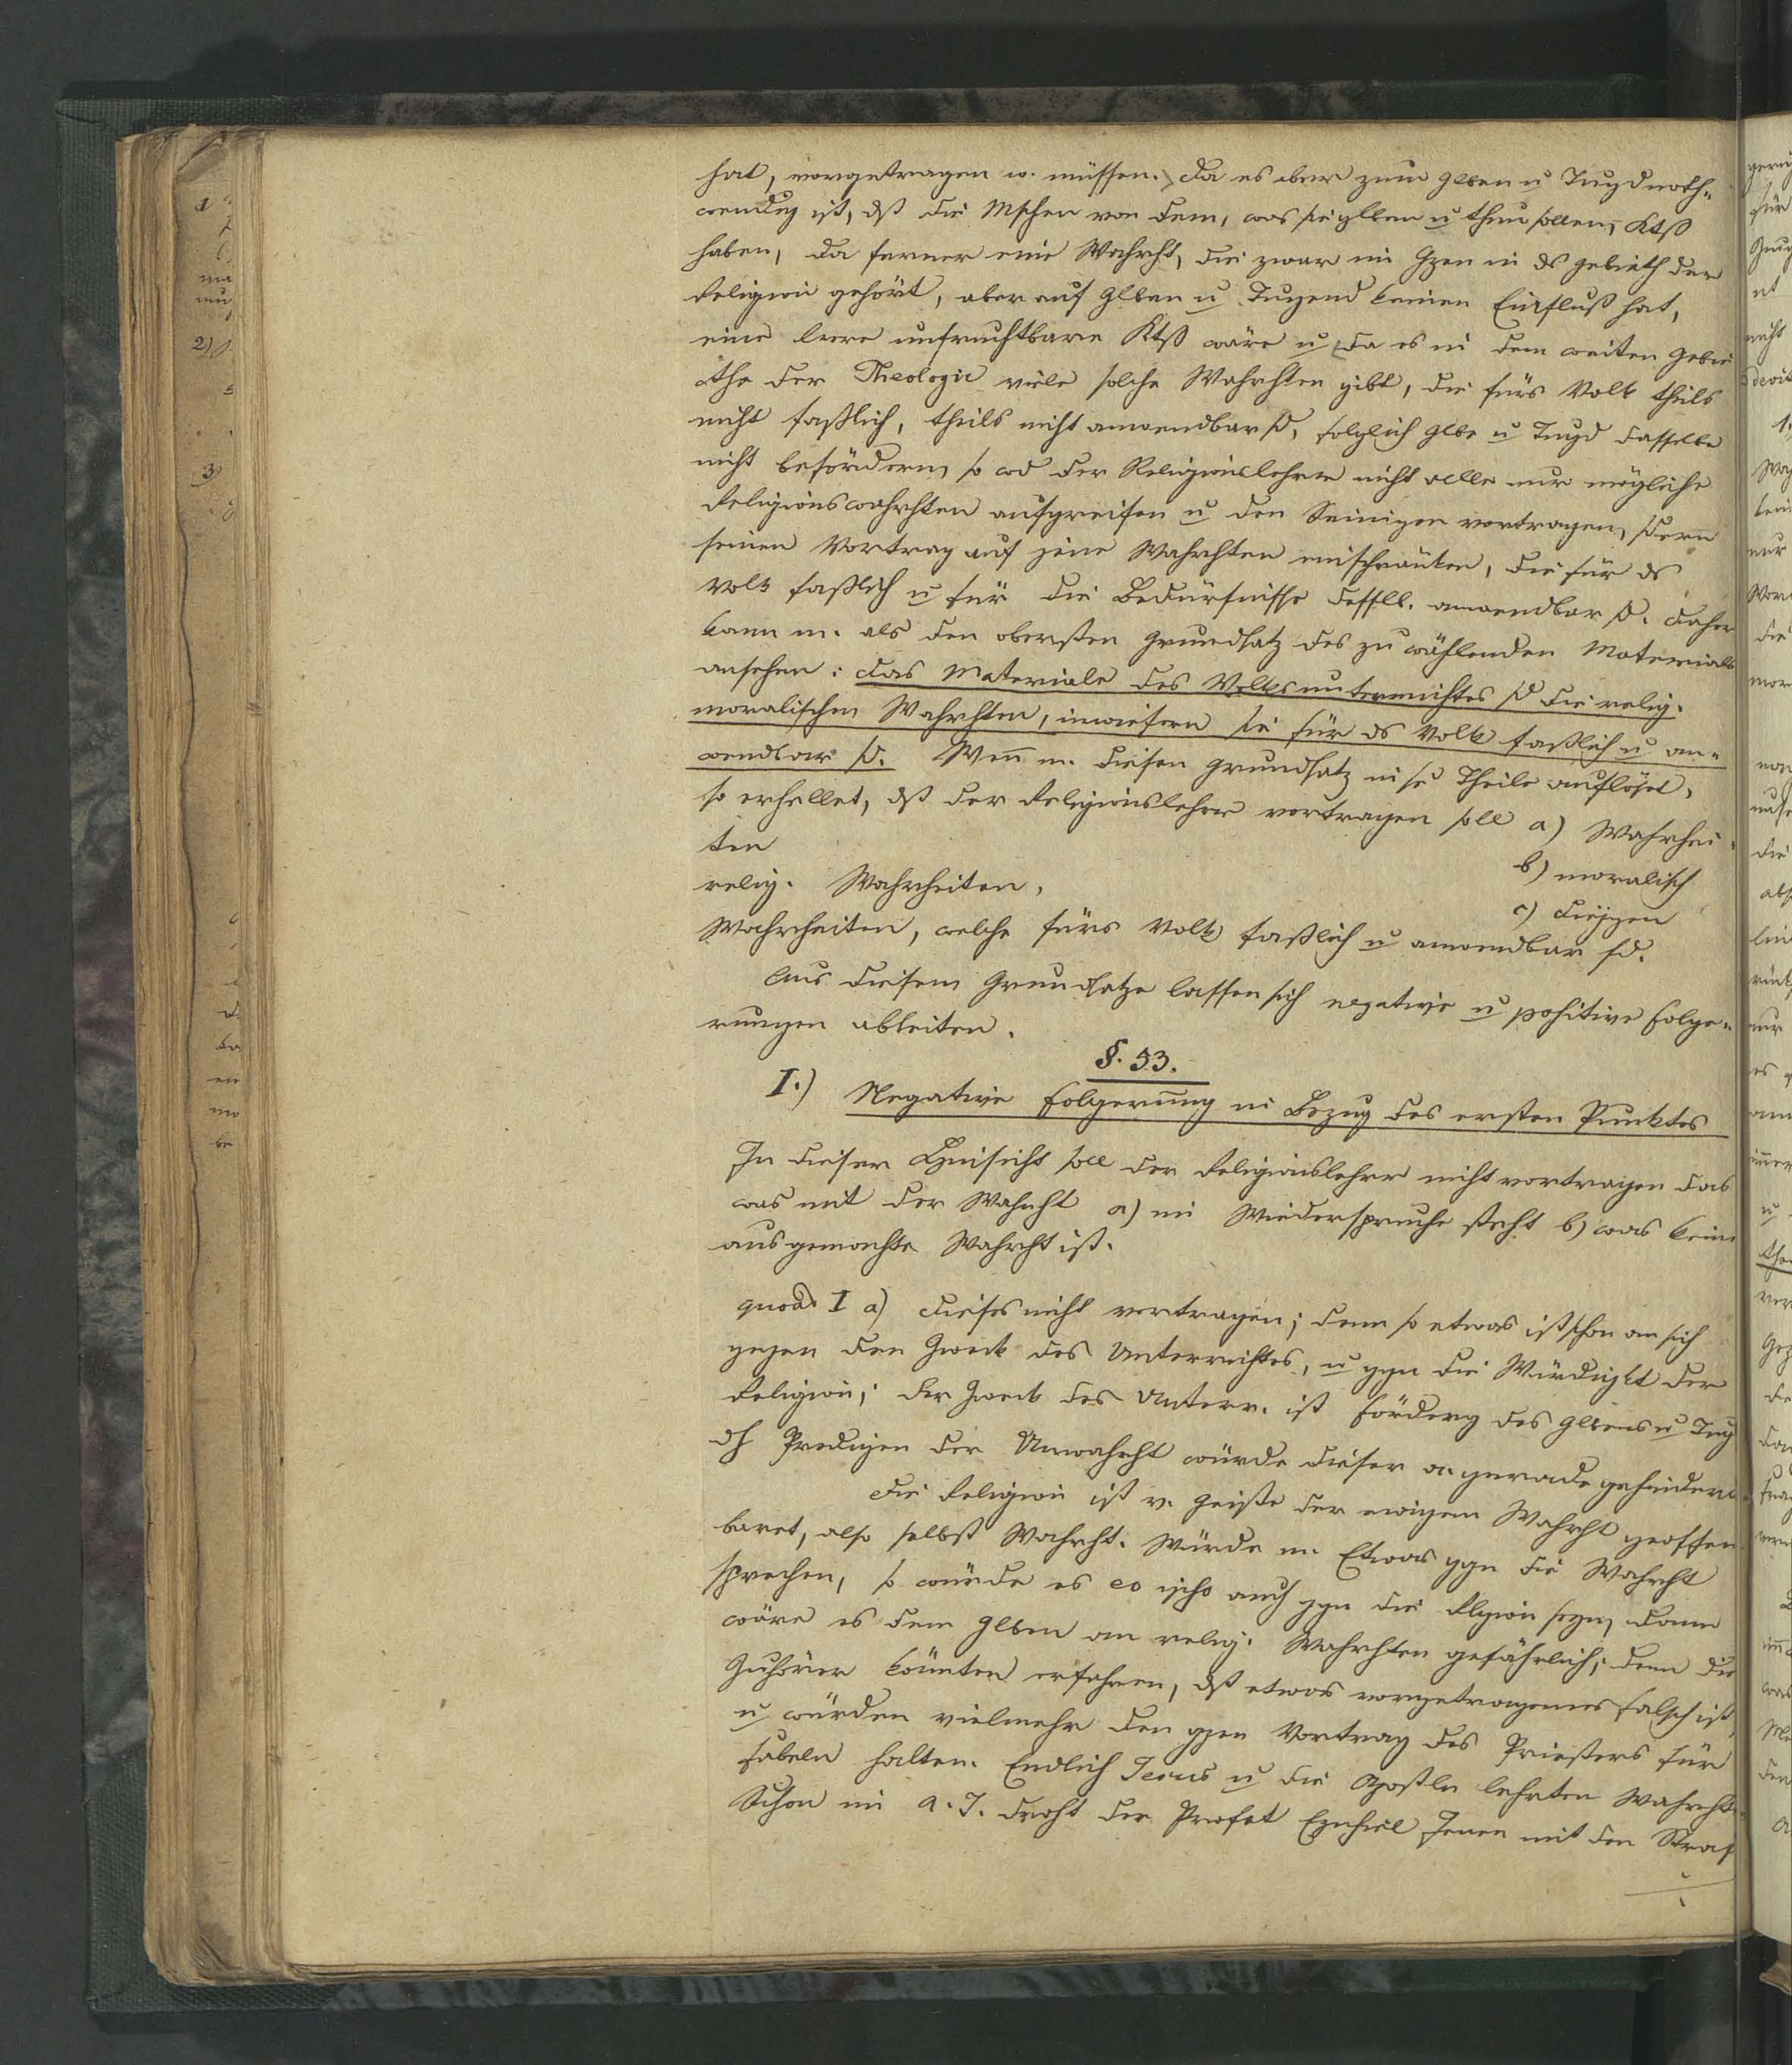 hat, vorgetragen w. müssen. Da es aber zum Glben u Tugd noth¬
wendig ist, dß die Mschen von dem, was sie glben u thun sollen, Ktß
haben, da ferner eine Wahrht, die zwar im Gzen in ds Gebieth der
Religion gehört, aber auf Glben u Tugend keinen Einfluß hat,
eine leere unfruchtbare Ktß wäre u da es in dem weiten Gebie
the der Theologie viele solche Wahrhten gibt, die fürs Volk theils
nicht faßlich, theils nicht anwendbar sd, folglich Glbe u Tugd dasselbe
nicht befördern, so wd der Religionslehrer nicht alle nur mögliche
Religionswahrhten aufgreifen u den Seinigen vortragen, sdern
seinen Vortrag auf jene Wahrhten einschränken, die für ds
Volk faßlich u für die Bedürfnisse desslb. anwendbar sd. Daher
kann m. als den obersten Grundsatz des zu wählenden Materials
ansehen: Das Materiale des Volksunterrichtes sd die relig.
moralischen Wahrhten, inwiefern sie für ds Volk faßlich u an¬
wendbar sd. Wen̅ m. diesen Grundsatz in se Theile auflöset,
so erhellet, dß der Religionslehrer vortragen soll a) Wahrhei
ten
b) moralisch
relig. Wahrheiten,
c) diejgen
Wahrheiten, welche fürs Volk faßlich u anwendbar sd.
Aus diesem Grundsatze lassen sich negative u positive Folge¬
rungen ableiten.
§. 53.
I.) Negative Folgerung in Bezug des ersten Punktes
In dieser Hinsicht soll der Religionslehrer nicht vortragen das
was mit der Wahrht a) im Wiederspruche steht b) was keine
ausgemachte Wahrht ist.
quoad I a) dieses nicht vortragen; denn so etwas ist schon an sich
gegen den Zweck des Unterrichtes, u ggn die Würdigkt der
Religion; der Zweck des Unterr. ist Förderg des Glbens u Tug
dh Predigen der Unwahrht würde dieser gerade gehindert
Die Religion ist v. Geiste der ewigen Wahrht geoffen
baret, also selbst Wahrht. Würde m. Etwas ggn die Wahrht
sprechen, so würde es eo ipso auch ggn die Rlgion seyn, dann
wäre es dem Glben an relig. Wahrhten gefährlich; denn die
Zuhörer könnten erfahren, dß etwas vorgetragenes falsch ist,
u würden vielmehr den gzen Vortrag des Priesters für
Fabeln halten. Endlich Jesus u die Apostln lehrten Wahrht.
Schon im A. T. droht der Profet Ezechiel Jenen mit den Straf